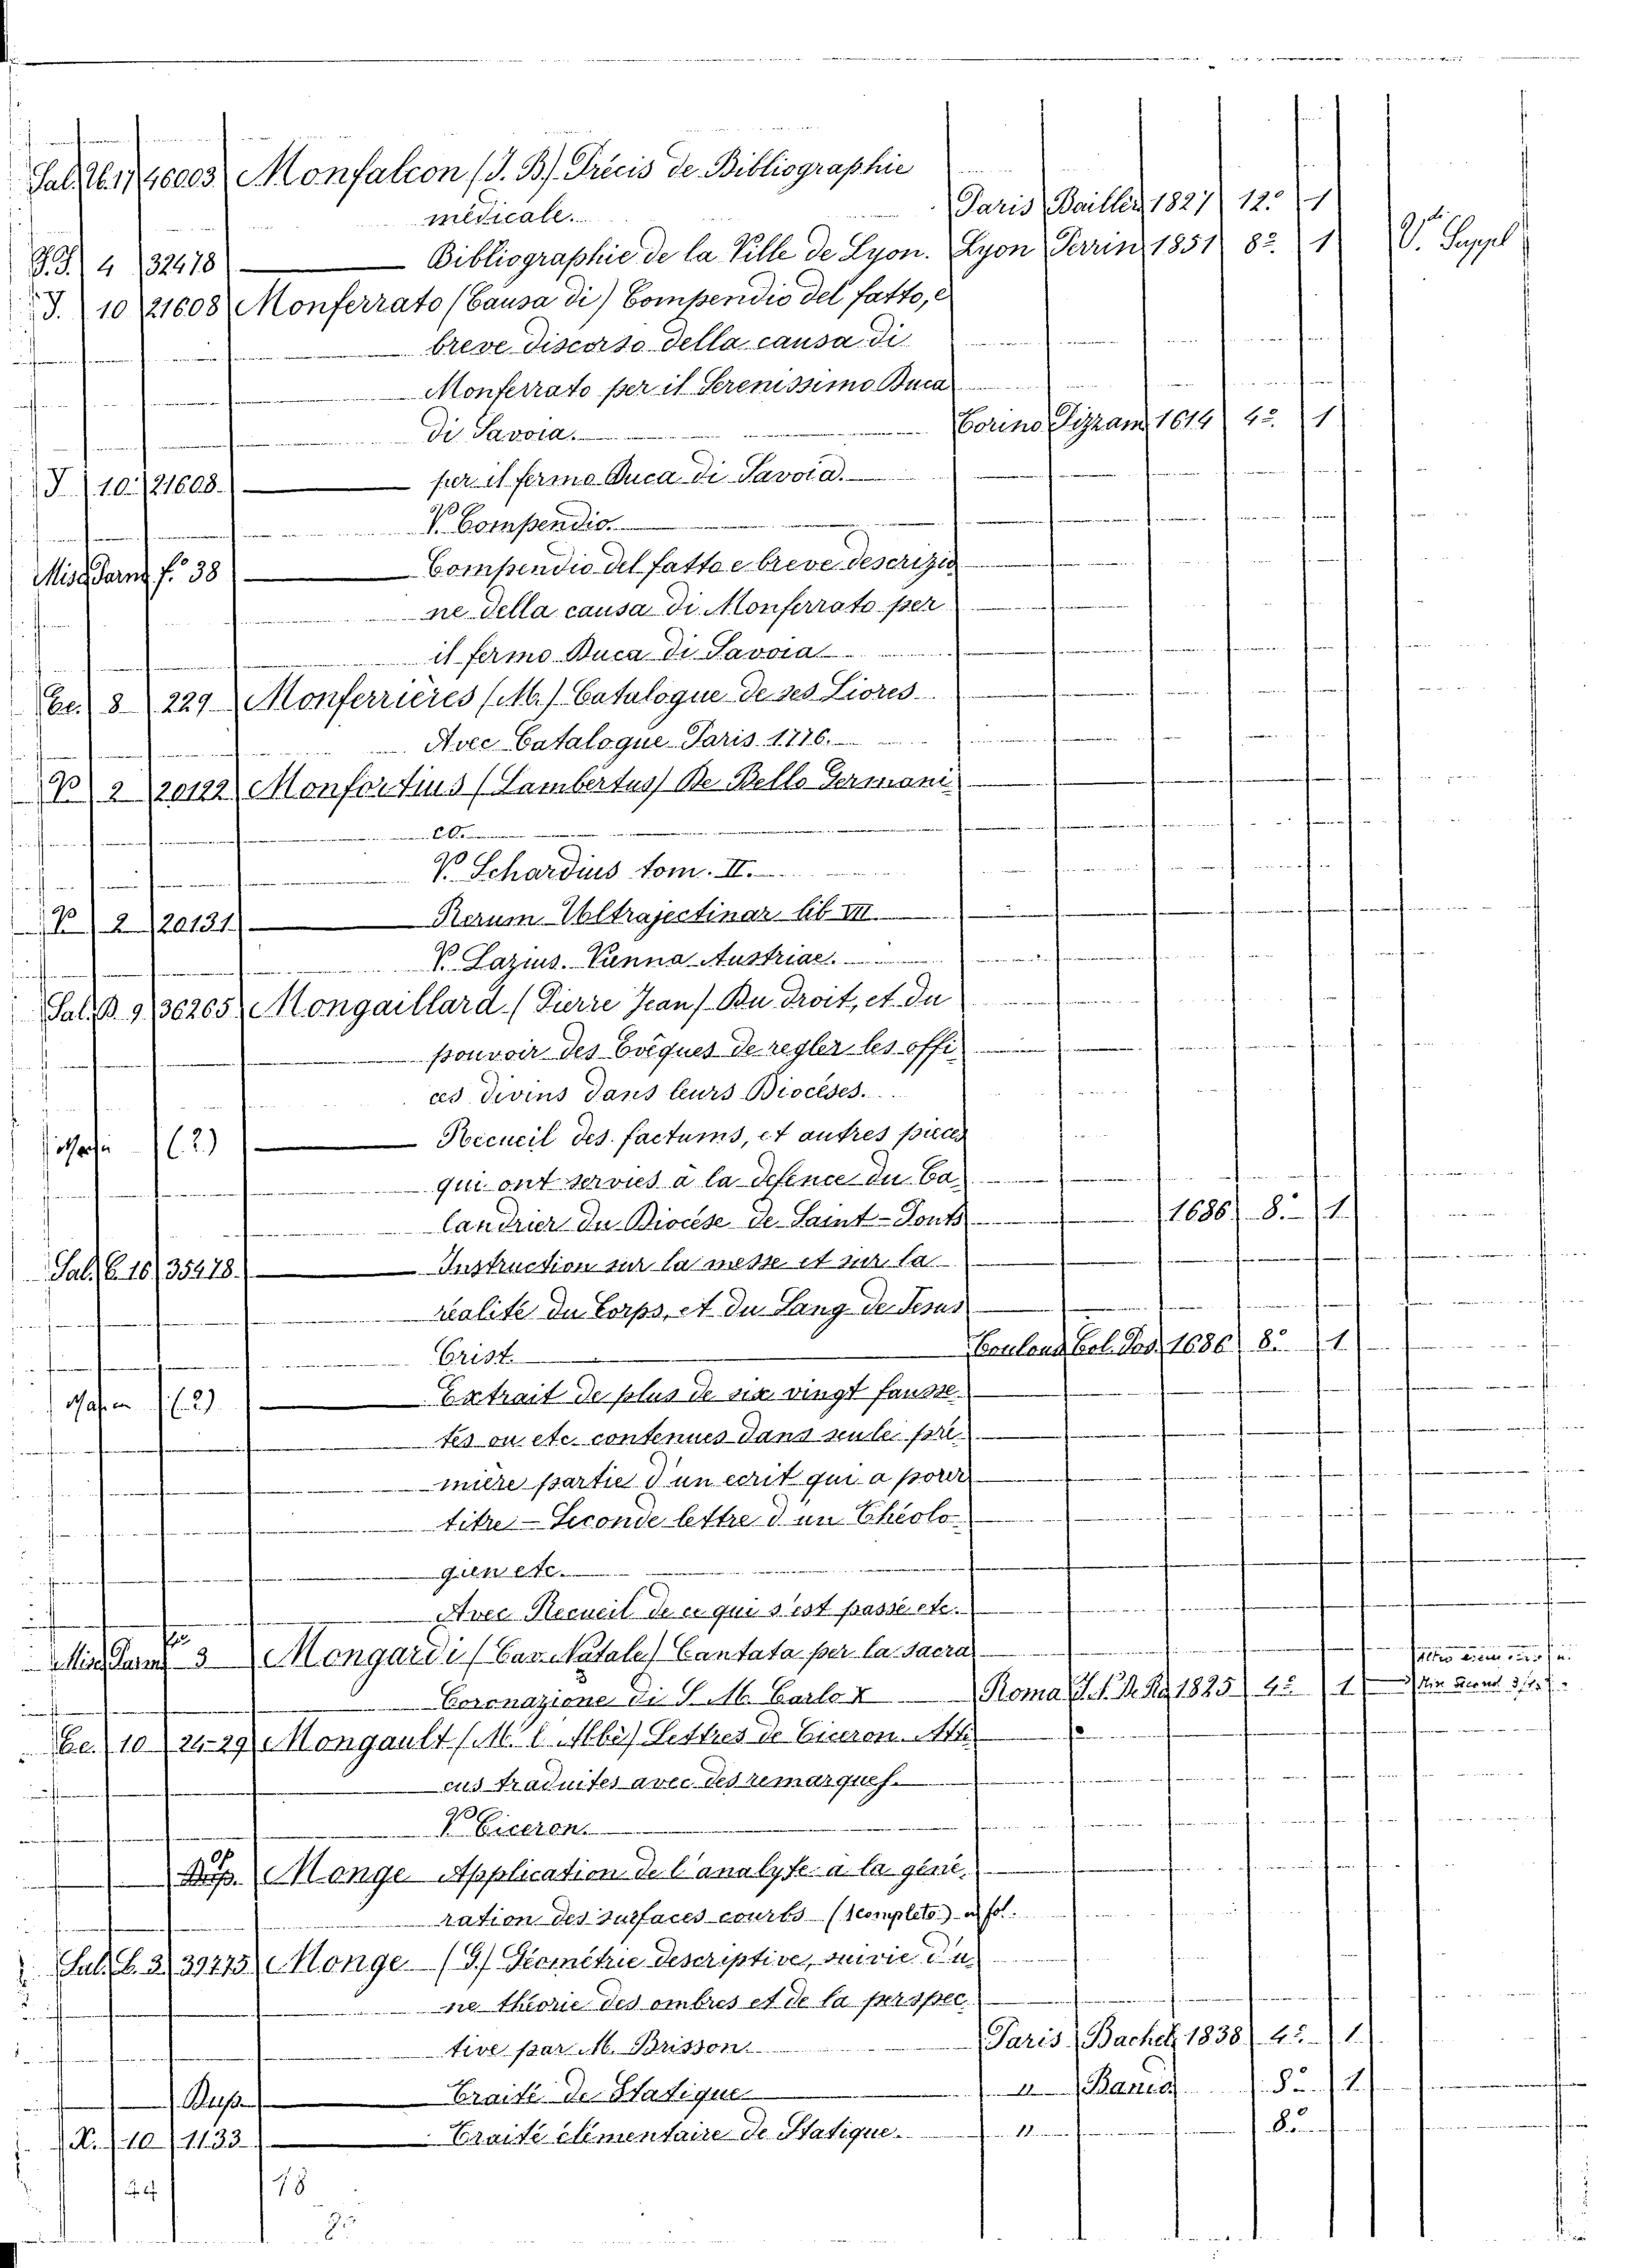 Sal. 26. 17 46003 Monfalcon (J. B.) Précis de Bibliographie
médicale. Paris Bailler 1827 12.° 1
J.J. 4 32478 Bibliographie de la Ville de Lyon. Lyon Perrin 1851 8.° 1 V. Suppl
J. 10 21608 Monferrato (Causa di) Compendio del fatto, e
breve discorso della causa di
Monferrato per il Serenissimo Duca
di Savoia. Torino Pizzam 1614 4.° 1
J 10. 21608. per il fermo Duca di Savoia.
V. Compendio.
Misc Parm f.° 38 Compendio del fatto e breve descrizio
ne della causa di Monferrato per
il fermo Duca di Savoia
Ce. 8 229 Monferrières (Mr.) Catalogue de ses Liores
Avec Catalogue Paris 1776.
P 2 20122 Monfortius (Lambertus) De Bello Germani
co.
V. Schardius tom. II.
P 2 20131 Rerum Ultrajectinar. lib VII.
V. Lazius. Vienna Austriae.
Sal. B. 9 36265 Mongaillard (Pierre Jean) Du droit, et du
pouvoir des Evêques de regler les offi
ces divins dans leurs Diocèses.
(2) Recueil des factums, et autres pieces
qui ont servies à la defence du Ca
landrier du Diocèse de Saint-Ponts 1686 8.° 1
Sal. C. 16 35478. Instruction sur la messe et sur la
réalité du Corps, et du Sang de Jesus
Crist. Toulous Col. Pos. 1686 8.° 1
(2) Extrait de plus de six vingt fausse
tes ou etc. contenues dans seule pre
mière partie d'un ecrit qui a pour
titre - Seconde lettre d'un Théolo
gien etc.
Avec Recueil de ce qui s'est passé etc.
Misc Parm f.° 3 Mongardi (Cav. Natale) Cantata per la sacra
Coronazione di S. M. Carlo X Roma 1825 4.° 1
Ce. 10 24-29 Mongault (M. l'Abé) Lettres de Ciceron Atti
cus traduites avec des remarques.
V. Ciceron.
Dup. Monge Application de l'analyse a la géné
ration des surfaces courbs (1 completo) in fol.
Sal. C. 3. 39275 Monge (G.) Géométrie descriptive, suivie d'u
ne théorie des ombres et de la perspec
tive par M. Brisson. Paris Bachel. 1838 4.° 1
Dup. Traité de Statique " 8.° 1
X. 10 1133 Traité élémentaire de Statique. " 8.°
18